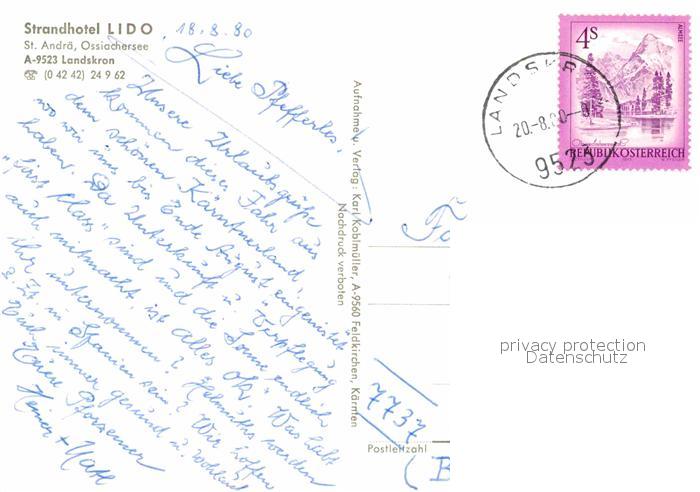 Strandhotel LIDO
St. Andrä, Ossiachersee
A-9523 Landskron
☎ (0 42 42) 24 9 62
18.8.80
Liebe Pfefferles,
Unsere Urlaubsgrüße
kommen dieses Jahr aus
dem schönen Kärntnerland,
wo wir uns bis Ende August eingenistet
haben. Da Unterkunft u. Verpflegung
"first Klass" sind und die Sonne endlich
auch mitmacht, ist alles ok. Was habt
Ihr unternommen? Helmuths werden
z. Zt. in Spanien sein? Wir hoffen
Euch immer gesund u. wohlauf
Eure Pforzemer
Heiner +
Aufnahme u. Verlag: Karl Koblmüller, A-9560 Feldkirchen, Kärnten
Nachdruck verboten
4S
ALMSEE
REPUBLIK ÖSTERREICH
LANDSKR
20.-8.80-
9523
Fa
privacy protection
Datenschutz
7737
Postleitzahl
(B